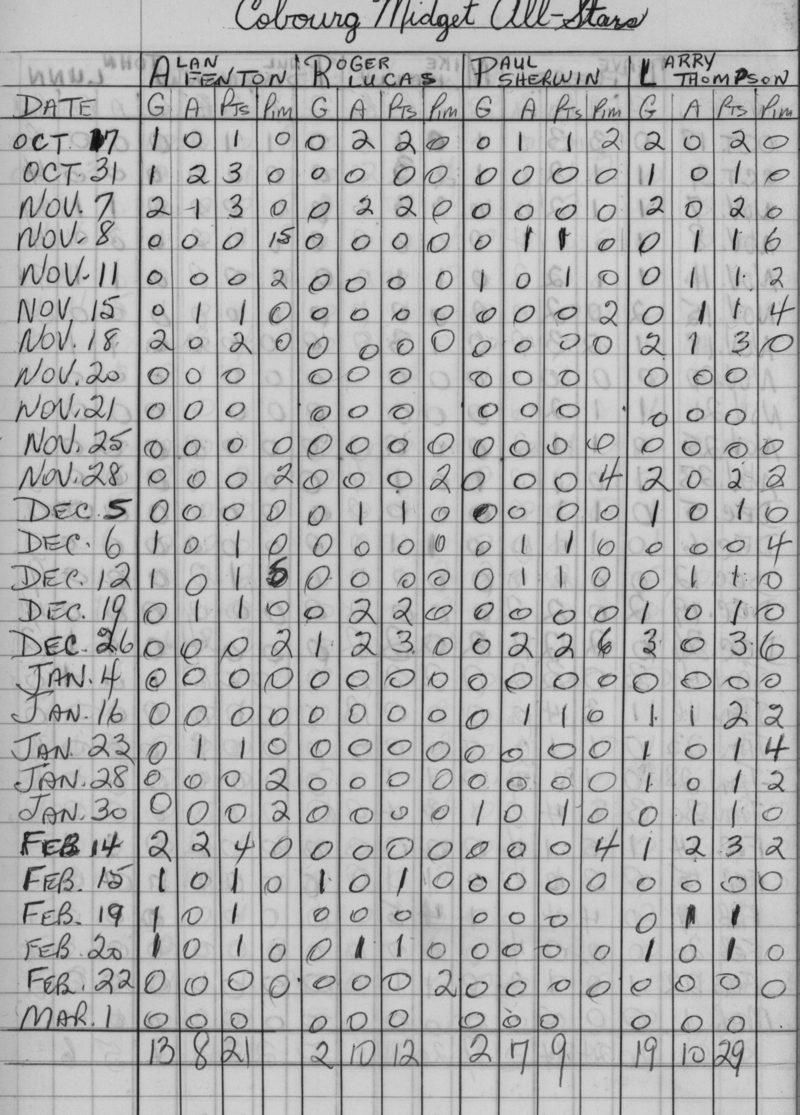 Cobourg Midget All-Stars
ALAN FENTON ROGER LUCAS PAUL SHERWIN LARRY THOMPSON
DATE G A Pts Pim G A Pts Pim G A Pts Pim G A Pts Pim
OCT. 17 1 0 1 0 0 2 2 0 0 1 1 2 2 0 2 0
OCT. 31 1 2 3 0 0 0 0 0 0 0 0 0 1 0 1 0
NOV. 7 2 1 3 0 0 2 2 0 0 0 0 0 2 0 2 0
NOV. 8 0 0 0 15 0 0 0 0 0 1 1 0 0 1 1 6
NOV. 11 0 0 0 2 0 0 0 0 1 0 1 0 0 1 1 2
NOV. 15 0 1 1 0 0 0 0 0 0 0 0 2 0 1 1 4
NOV. 18 2 0 2 0 0 0 0 0 0 0 0 0 2 1 3 0
NOV. 20 0 0 0 0 0 0 0 0 0 0 0 0
NOV. 21 0 0 0 0 0 0 0 0 0 0 0 0
NOV. 25 0 0 0 0 0 0 0 0 0 0 0 0 0 0 0
NOV. 28 0 0 0 2 0 0 0 2 0 0 0 4 2 0 2 2
DEC. 5 0 0 0 0 0 1 1 0 0 0 0 0 1 0 1 0
DEC. 6 1 0 1 0 0 0 0 0 0 1 1 0 0 0 0 4
DEC. 12 1 0 1 0 0 0 0 0 1 1 0 0 1 1 0
DEC. 19 0 1 1 0 0 2 2 0 0 0 0 0 1 0 1 0
DEC. 26 0 0 0 2 1 2 3 0 0 2 2 6 3 0 3 6
JAN. 4 0 0 0 0 0 0 0 0 0 0 0 0 0 0 0 0
JAN. 16 0 0 0 0 0 0 0 0 0 1 1 0 1 1 2 2
JAN. 23 0 1 1 0 0 0 0 0 0 0 0 0 1 0 1 4
JAN. 28 0 0 0 2 0 0 0 0 0 0 0 0 1 0 1 2
JAN. 30 0 0 0 2 0 0 0 0 1 0 1 0 0 1 1 0
FEB 14 2 2 4 0 0 0 0 0 0 0 0 4 1 2 3 2
FEB. 15 1 0 1 0 1 0 1 0 0 0 0 0 0 0 0 0
FEB. 19 1 0 1 0 0 0 0 0 0 0 1 1
FEB. 20 1 0 1 0 0 1 1 0 0 0 0 0 1 0 1 0
FEB. 22 0 0 0 0 0 0 0 2 0 0 0 0 0 0 0 0
MAR. 1 0 0 0 0 0 0 0 0 0 0 0 0
13 8 21 2 10 12 2 7 9 19 10 29